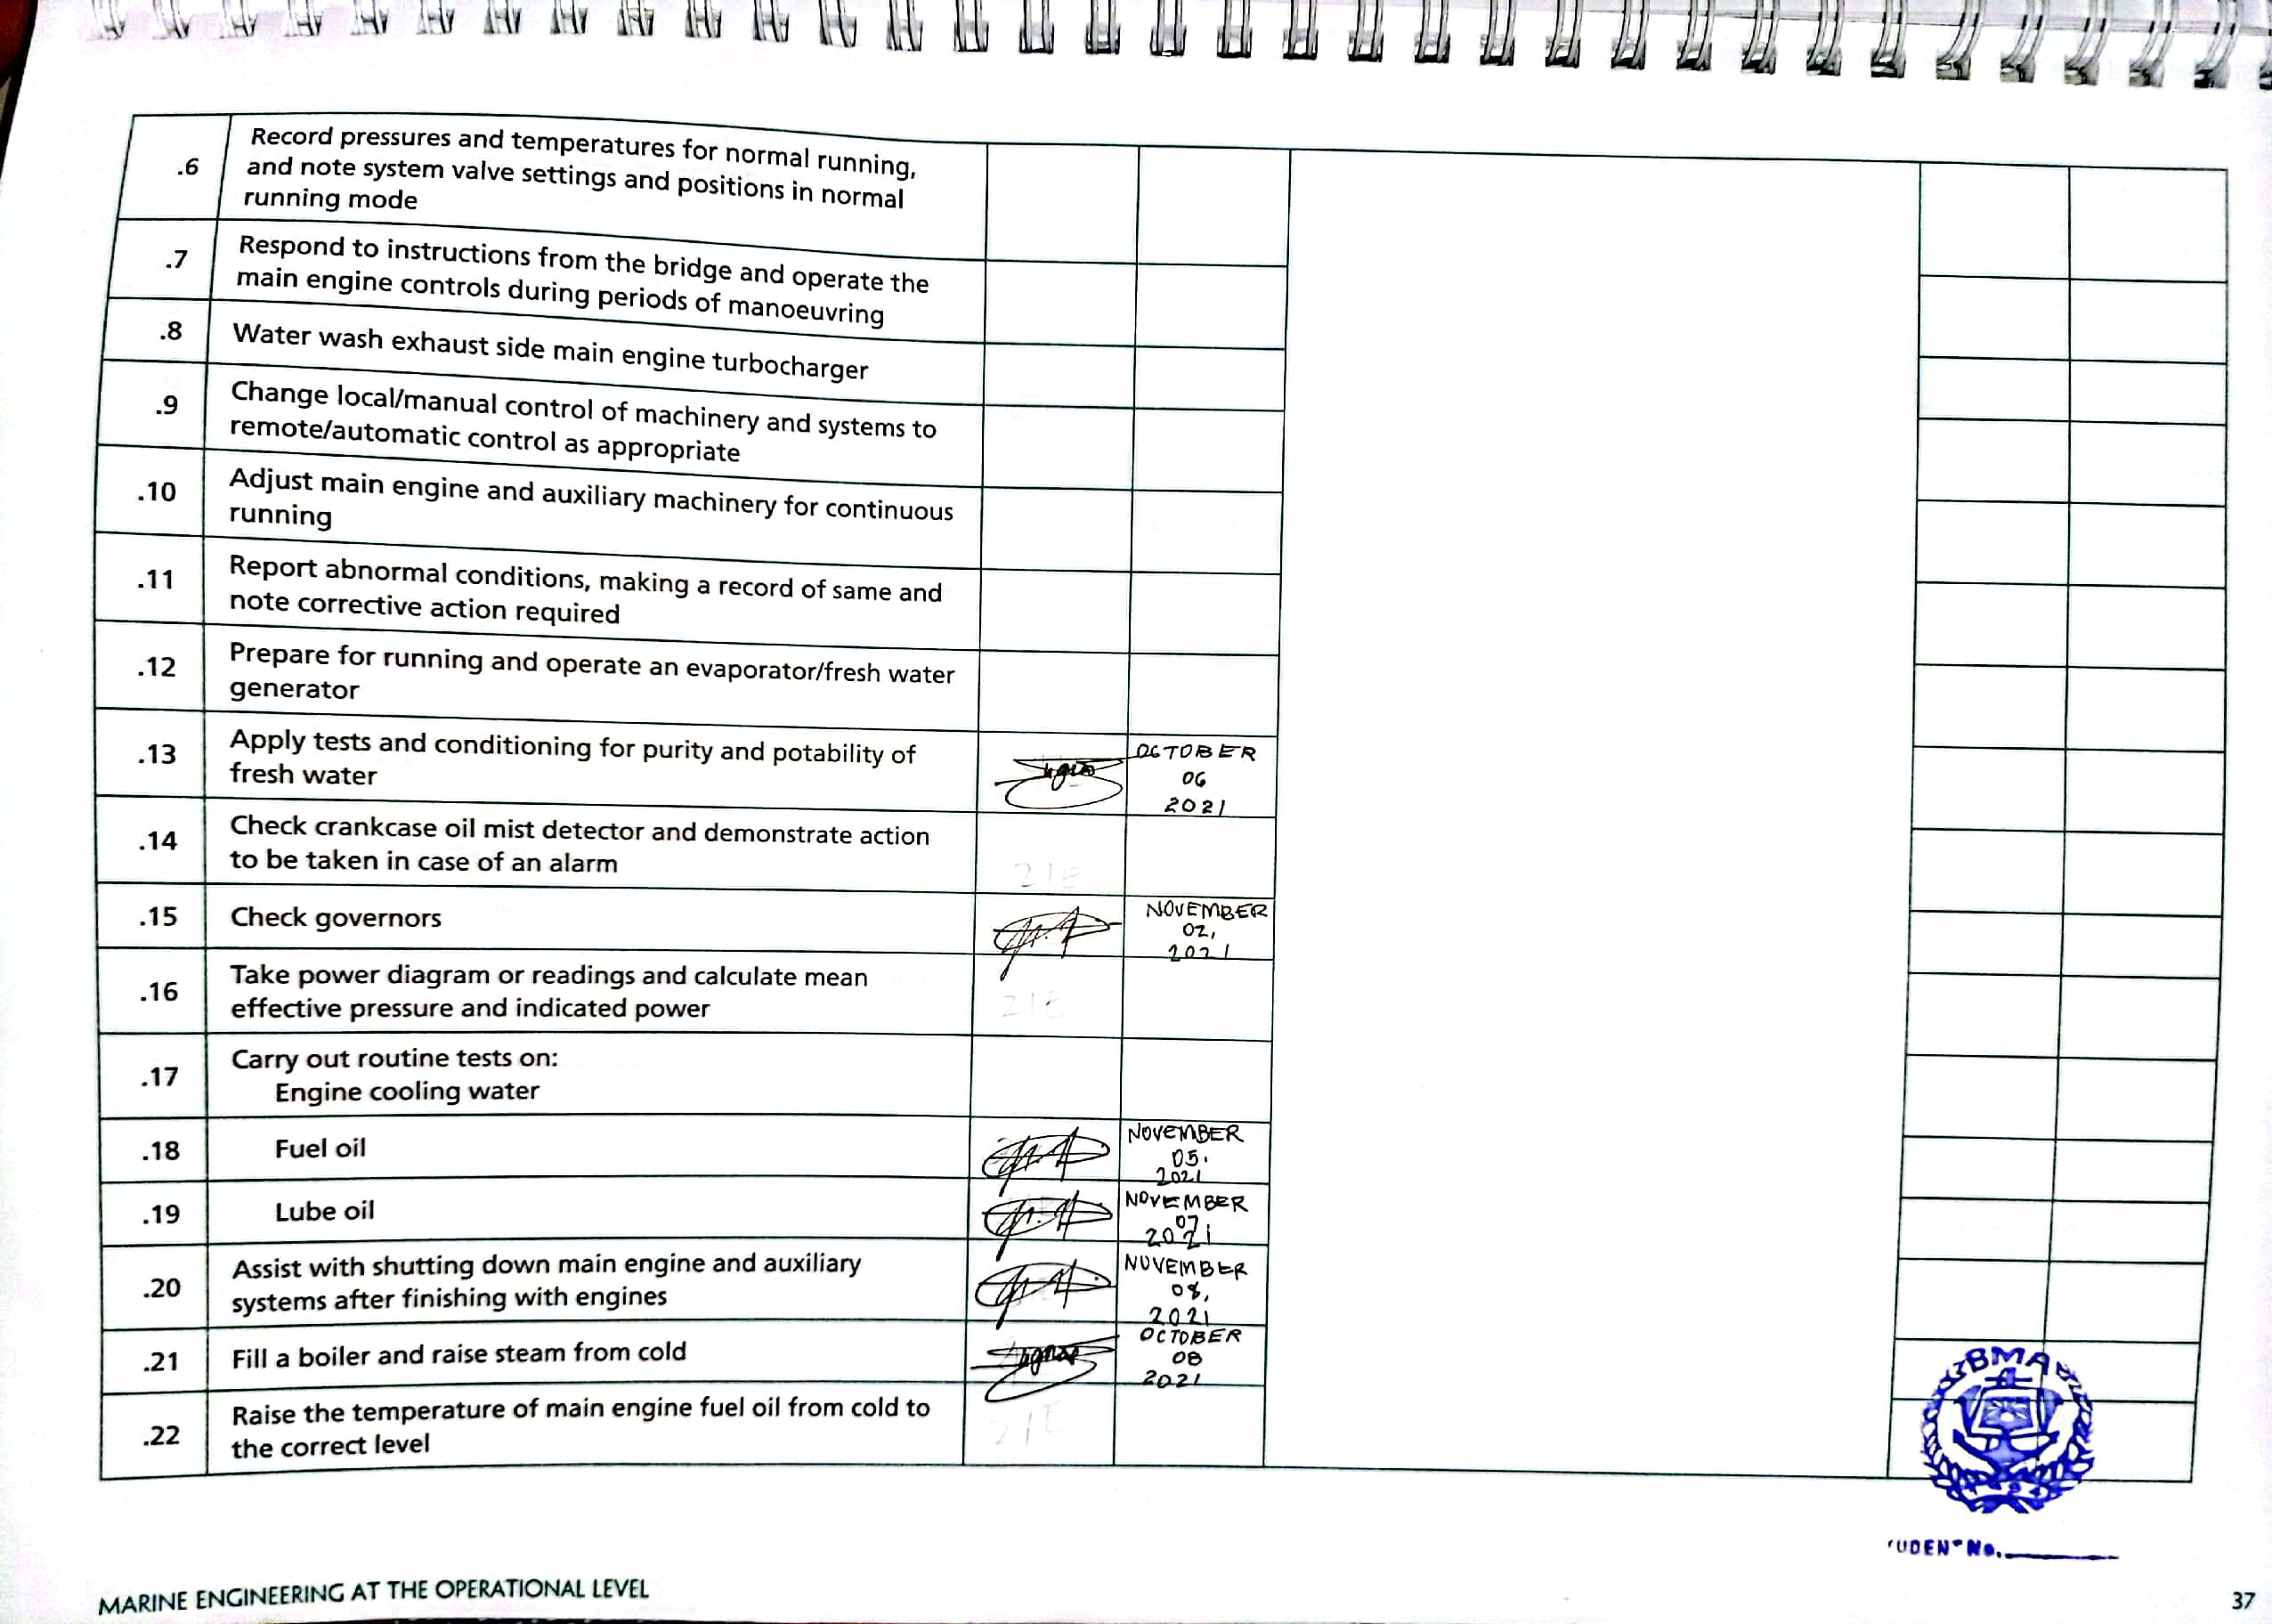 .6
Record pressures and temperatures for normal running,
and note system valve settings and positions in normal
running mode
.7
Respond to instructions from the bridge and operate the
main engine controls during periods of manoeuvring
.8
Water wash exhaust side main engine turbocharger
.9
Change local/manual control of machinery and systems to
remote/automatic control as appropriate
.10
Adjust main engine and auxiliary machinery for continuous
running
.11
Report abnormal conditions, making a record of same and
note corrective action required
.12
Prepare for running and operate an evaporator/fresh water
generator
.13
Apply tests and conditioning for purity and potability of
fresh water
OCTOBER
06
2021
.14
Check crankcase oil mist detector and demonstrate action
to be taken in case of an alarm
2/E
.15
Check governors
NOVEMBER
02,
2021
.16
Take power diagram or readings and calculate mean
effective pressure and indicated power
2/E
.17
Carry out routine tests on:
Engine cooling water
.18
Fuel oil
NOVEMBER
05.
2021
.19
Lube oil
NOVEMBER
07
2021
.20
Assist with shutting down main engine and auxiliary
systems after finishing with engines
NOVEMBER
08,
2021
.21
Fill a boiler and raise steam from cold
OCTOBER
08
2021
.22
Raise the temperature of main engine fuel oil from cold to
the correct level
2/E
BMA
UDENT No.
MARINE ENGINEERING AT THE OPERATIONAL LEVEL
37